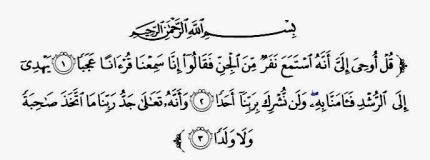 بِسْمِ اللَّهِ الرَّحْمَٰنِ الرَّحِيمِ
﴿ قُلْ أُوحِيَ إِلَيَّ أَنَّهُ ٱسْتَمَعَ نَفَرٌ مِّنَ ٱلْجِنِّ فَقَالُوٓا۟ إِنَّا سَمِعْنَا قُرْءَانًا عَجَبًا ١ يَهْدِىٓ
إِلَى ٱلرُّشْدِ فَـَٔامَنَّا بِهِۦ ۖ وَلَن نُّشْرِكَ بِرَبِّنَآ أَحَدًا ٢ وَأَنَّهُۥ تَعَٰلَىٰ جَدُّ رَبِّنَا مَا ٱتَّخَذَ صَٰحِبَةً
وَلَا وَلَدًا ٣ ﴾